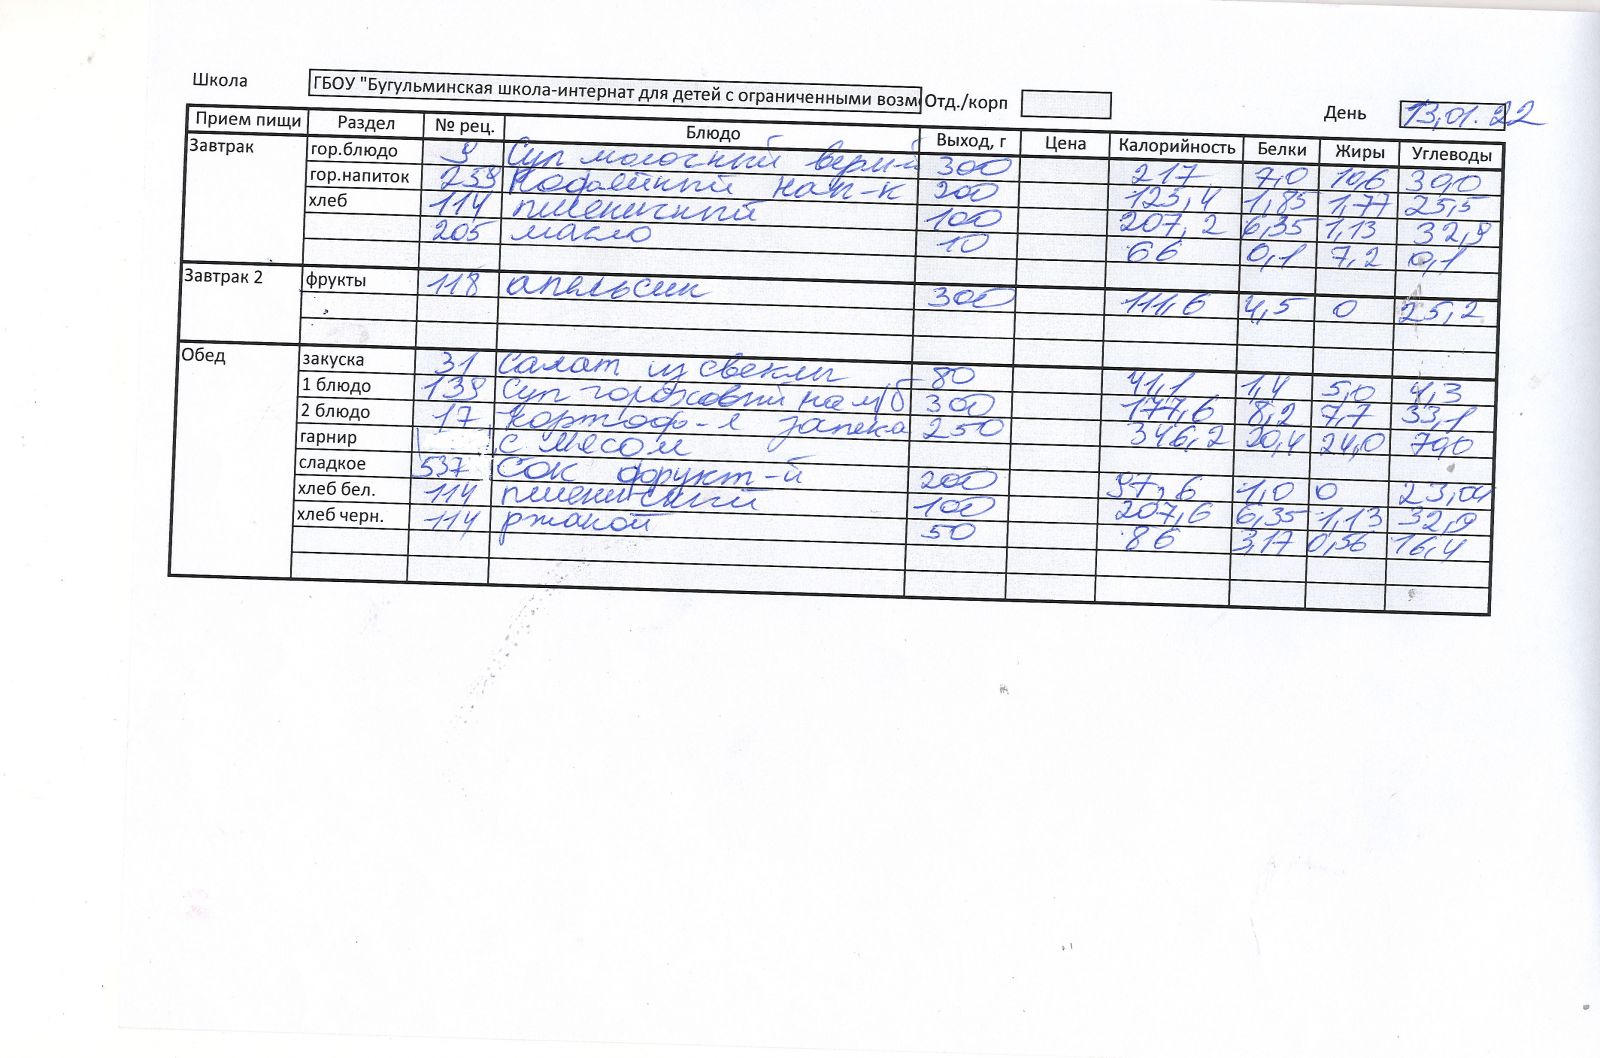 Школа ГБОУ "Бугульминская школа-интернат для детей с ограниченными возм Отд./корп День 13,01.22
Прием пищи Раздел № рец. Блюдо Выход, г Цена Калорийность Белки Жиры Углеводы
Завтрак гор.блюдо 9 Суп молочный верм-й 300 217 7,0 10,6 39,0
гор.напиток 239 Кофейный нап-к 200 125,4 1,85 1,77 25,5
хлеб 114 пшеничный 100 207,2 6,35 1,13 32,9
205 масло 10 66 0,1 7,2 0,1
Завтрак 2 фрукты 118 апельсин 300 111,6 4,5 0 25,2
Обед закуска 31 Салат из свеклы 80 41,1 1,4 5,0 4,3
1 блюдо 139 Суп гороховый на м/б 300 177,6 8,2 7,7 33,1
2 блюдо 17 Картоф-я запека 250 346,2 20,4 24,0 70,0
гарнир с мясом
сладкое 537 Сок фрукт-й 200 97,6 1,0 0 23,04
хлеб бел. 114 пшеничный 100 207,6 6,35 1,13 32,9
хлеб черн. 114 ржаной 50 86 3,17 0,56 16,4